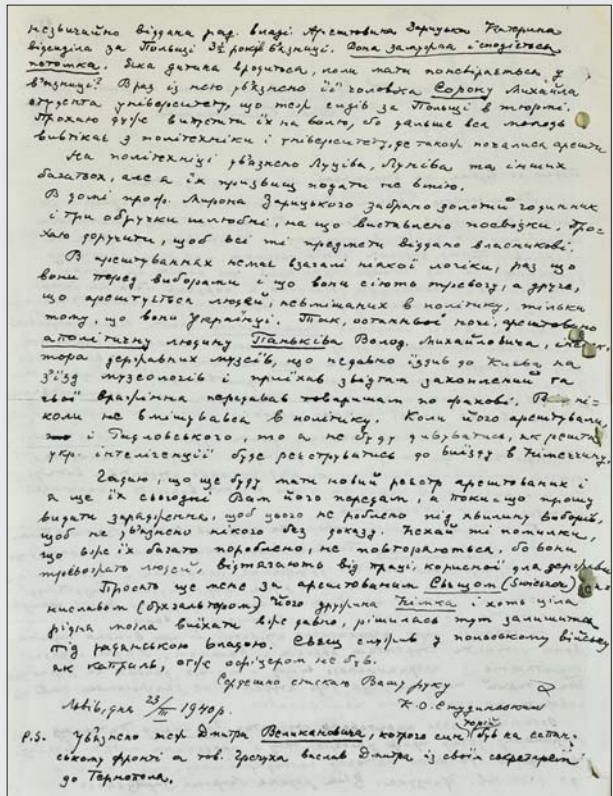 незвичайно віддана рад. владі. Арештована Зарицька Катерина
відсиділа за Польщі 3½ років в'язниці. Вона замужна і сподіється
потомка. Яка дитина вродиться, коли мати поневіряється у
в'язниці? Враз із нею ув'язнено її чоловіка Сороку Михайла
студента університету, що теж сидів за Польщі в тюрмі.
Прохаю дуже випустити їх на волю, бо дальше вся молодь
виїкає з політехніки і університету, де також почалися арешти
На політехніці ув'язнено Луціва, Луніва та інших
багатьох, але я їх прізвищ подати не вмію.
В домі проф. Мирона Зарицького забрано золотий годинник
і три обручки шлюбні, на що виставлено посвідки. Про-
хаю доручити, щоб всі ті предмети віддано власникові.
В арештуваннях немає взагалі ніякої логіки, раз що
вони перед виборами і що вони сіють тревогу, а друге,
що арештується людей, невмішаних в політику, тільки
тому, що вони Українці. Так, останньої ночі, арештовано
аполітичну людину Паньківа Волод. Михайловича, інспек-
тора державних музеїв, що недавно їздив до Києва на
з'їзд музеологів і приїхав звідтам захоплений та
свої вражіння передавав товаришам по фахові. Він ні-
коли не вмішувався в політику. Коли його арештували,
і Гидловського, то я не буду дивуватись, як решта
укр. інтелігенції буде реєструватись до виїзду в Німеччину.
Гадаю, що ще буду мати новий реєстр арештованих і
я ще їх сьогодні Вам його передам, а поки-що прошу
видати зарядження, щоб цього не роблено під хвилину виборів,
щоб не ув'язнено нікого без доказу. Нехай ті помилки,
що вже їх багато пороблено, не повторяються, бо вони
тревожать людей, відтягають від праці, корисної для держави
Просять ще мене за арештованим Свєщом (Świeszcz)
ниславом (бухгальтором) Його дружина Німка і хоть ціла
рідня могла виїхати вже давно, рішилась тут залишитись
під радянською владою. Свєщ служив у польському війську
як капраль, отже офіцером не був.
Сердечно стискаю Вашу руку
К. О. Студинський
Львів, дня 23/III 1940 р.
P.S. Ув'язнено теж Дмитра Великановича, котрого син Юрій був на еспан-
ському фронті а тов. Гречуха вислав Дмитра із своїм секретарем
до Тернополя.